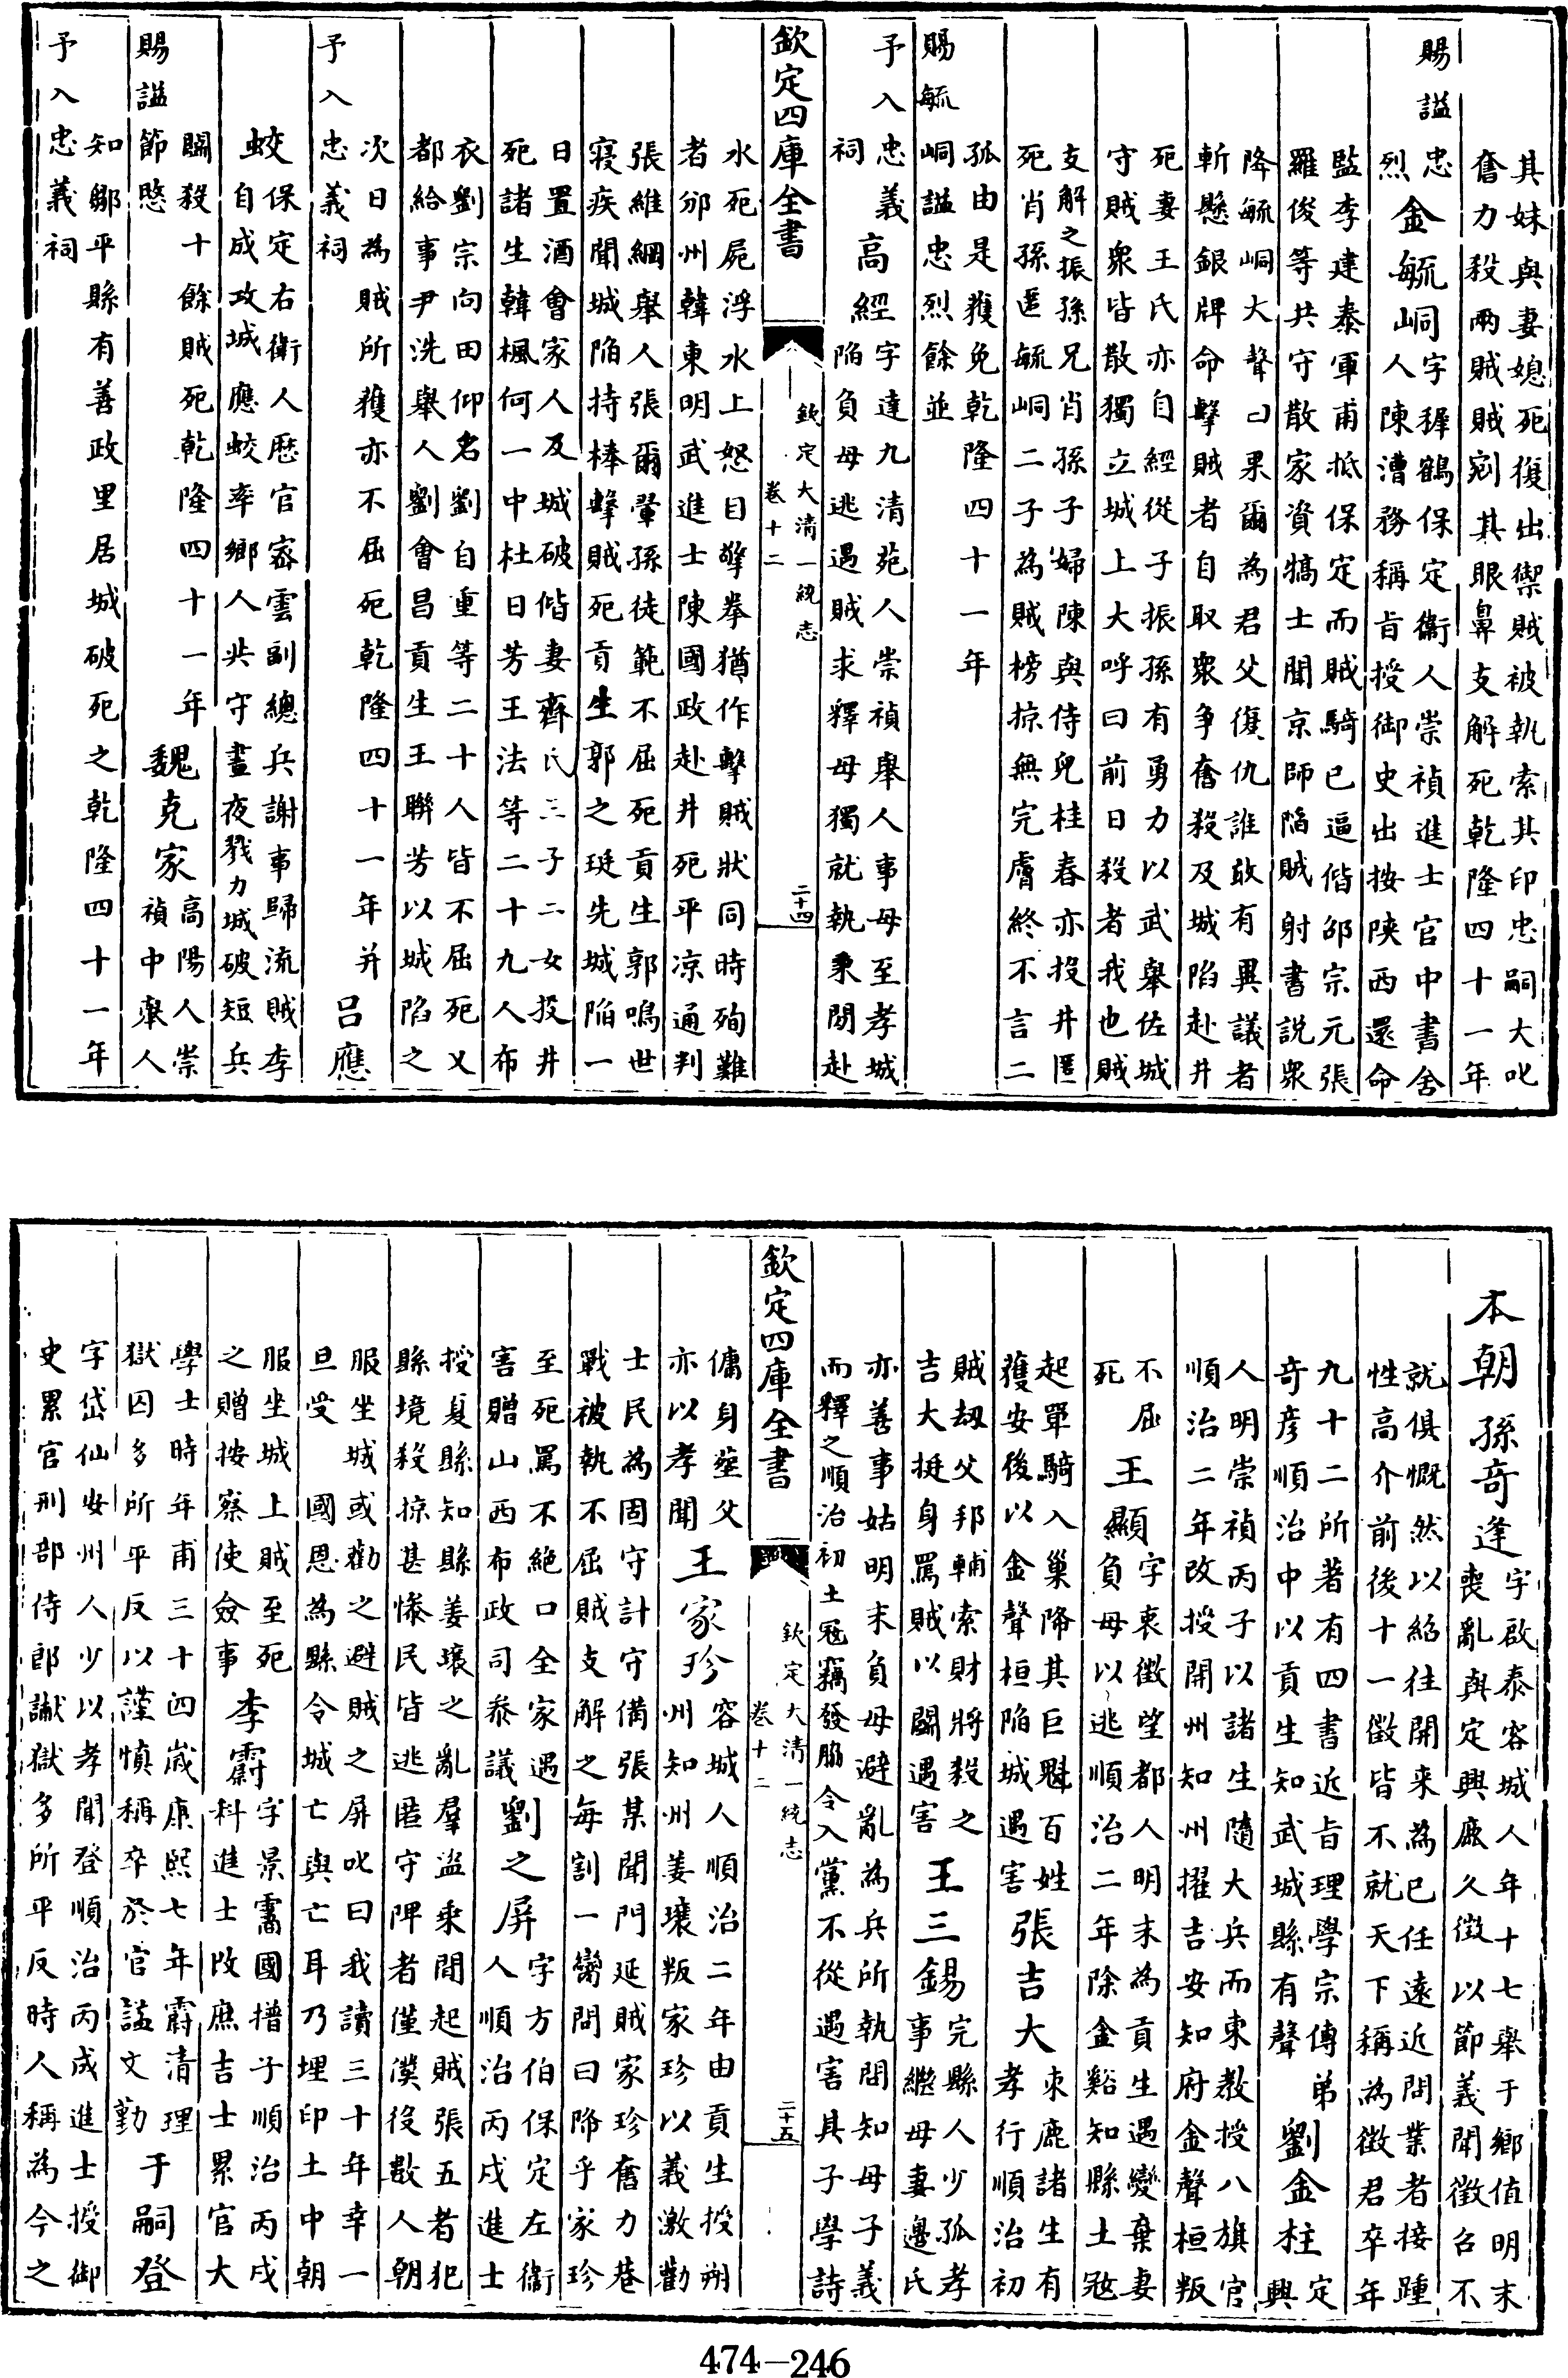 其妹與妻媳死復出禦賊被執索其印忠嗣大叱
奮力殺兩賊賊剜其眼鼻支解死乾隆四十一年
賜諡忠烈
金毓峒字穉鶴保定衞人崇禎進士官中書舍
人陳漕務稱旨授御史出按陝西還命
監李建泰軍甫抵保定而賊騎已逼偕邵宗元張
羅俊等共守散家資犒士聞京師陷賊射書說衆
降毓峒大聲曰果爾為君父復仇誰敢有異議者
斬懸銀牌命擊賊者自取衆爭奮殺及城陷赴井
死妻王氏亦自經從子振孫有勇力以武舉佐城
守賊衆皆散獨立城上大呼曰前日殺者我也賊
支解之振孫兄肖孫子婦陳與侍兒桂春亦投井
死肖孫匿毓峒二子為賊榜掠無完膚終不言二
孤由是獲免乾隆四十一年
賜毓峒諡忠烈餘並
予入忠義祠
高經字達九清苑人崇禎舉人事母至孝城
陷負母逃遇賊求釋母獨就執乘間赴
欽定四庫全書
欽定大清一統志
卷十二
二十四
水死屍浮水上怒目擎拳猶作擊賊狀同時殉難
者邠州韓東明武進士陳國政赴井死平凉通判
張維綱舉人張爾翬孫徒範不屈死貢生郭鳴世
寢疾聞城陷持棒擊賊死貢生郭之珽先城陷一
日置酒會家人及城破偕妻齊氏三子二女投井
死諸生韓楓何一中杜日芳王法等二十九人布
衣劉宗向田仰名劉自重等二十人皆不屈死又
都給事尹洗舉人劉會昌貢生王聯芳以城陷之
次日為賊所獲亦不屈死乾隆四十一年并
予入忠義祠
呂應
蛟保定右衞人歷官密雲副總兵謝事歸流賊李
自成攻城應蛟率鄉人共守晝夜戮力城破短兵
鬭殺十餘賊死乾隆四十一年
賜諡節愍
魏克家高陽人崇
禎中舉人
知鄒平縣有善政里居城破死之乾隆四十一年
予入忠義祠
本朝
孫奇逢字啟泰容城人年十七舉于鄉值明末
喪亂與定興鹿久徵以節義聞徵召不
就俱慨然以紹往開来為己任遠近問業者接踵
性高介前後十一徵皆不就天下稱為徵君卒年
九十二所著有四書近旨理學宗傳弟
奇彥順治中以貢生知武城縣有聲
劉金柱定
興
人明崇禎丙子以諸生隨大兵而東教授八旗官
順治二年改授開州知州擢吉安知府金聲桓叛
不屈
死
王顯字衷徵望都人明末為貢生遇變棄妻
負母以逃順治二年除金谿知縣土宼
起單騎入巢降其巨魁百姓
獲安後以金聲桓陷城遇害
張吉大束鹿諸生有
孝行順治初
賊刼父邦輔索財將殺之
吉大挺身罵賊以鬭遇害
王三錫完縣人少孤孝
事繼母妻邊氏
亦善事姑明末負母避亂為兵所執問知母子義
而釋之順治初土宼竊發脇令入黨不從遇害其子學詩
欽定四庫全書
欽定大清一統志
卷十二
二十五
傭身塟父
亦以孝聞
王家珍容城人順治二年由貢生授朔
州知州姜瓖叛家珍以義激勸
士民為固守計守備張某聞門延賊家珍奮力巷
戰被執不屈賊支解之每割一臠問曰降乎家珍
至死罵不絕口全家遇
害贈山西布政司叅議
劉之屏字方伯保定左衞
人順治丙戌進士
授夏縣知縣姜瓖之亂羣盜乘間起賊張五者犯
縣境殺掠甚慘民皆逃匿守陴者僅僕役數人朝
服坐城或勸之避賊之屏叱曰我讀三十年幸一
旦受國恩為縣令城亡與亡耳乃埋印土中朝
服坐城上賊至死
之贈按察使僉事
李霨字景霱國㯳子順治丙戌
科進士改庶吉士累官大
學士時年甫三十四歲康熙七年霨清理
獄囚多所平反以謹慎稱卒於官諡文勤
于嗣登
字岱仙安州人少以孝聞登順治丙戌進士授御
史累官刑部侍郎讞獄多所平反時人稱為今之
474-246